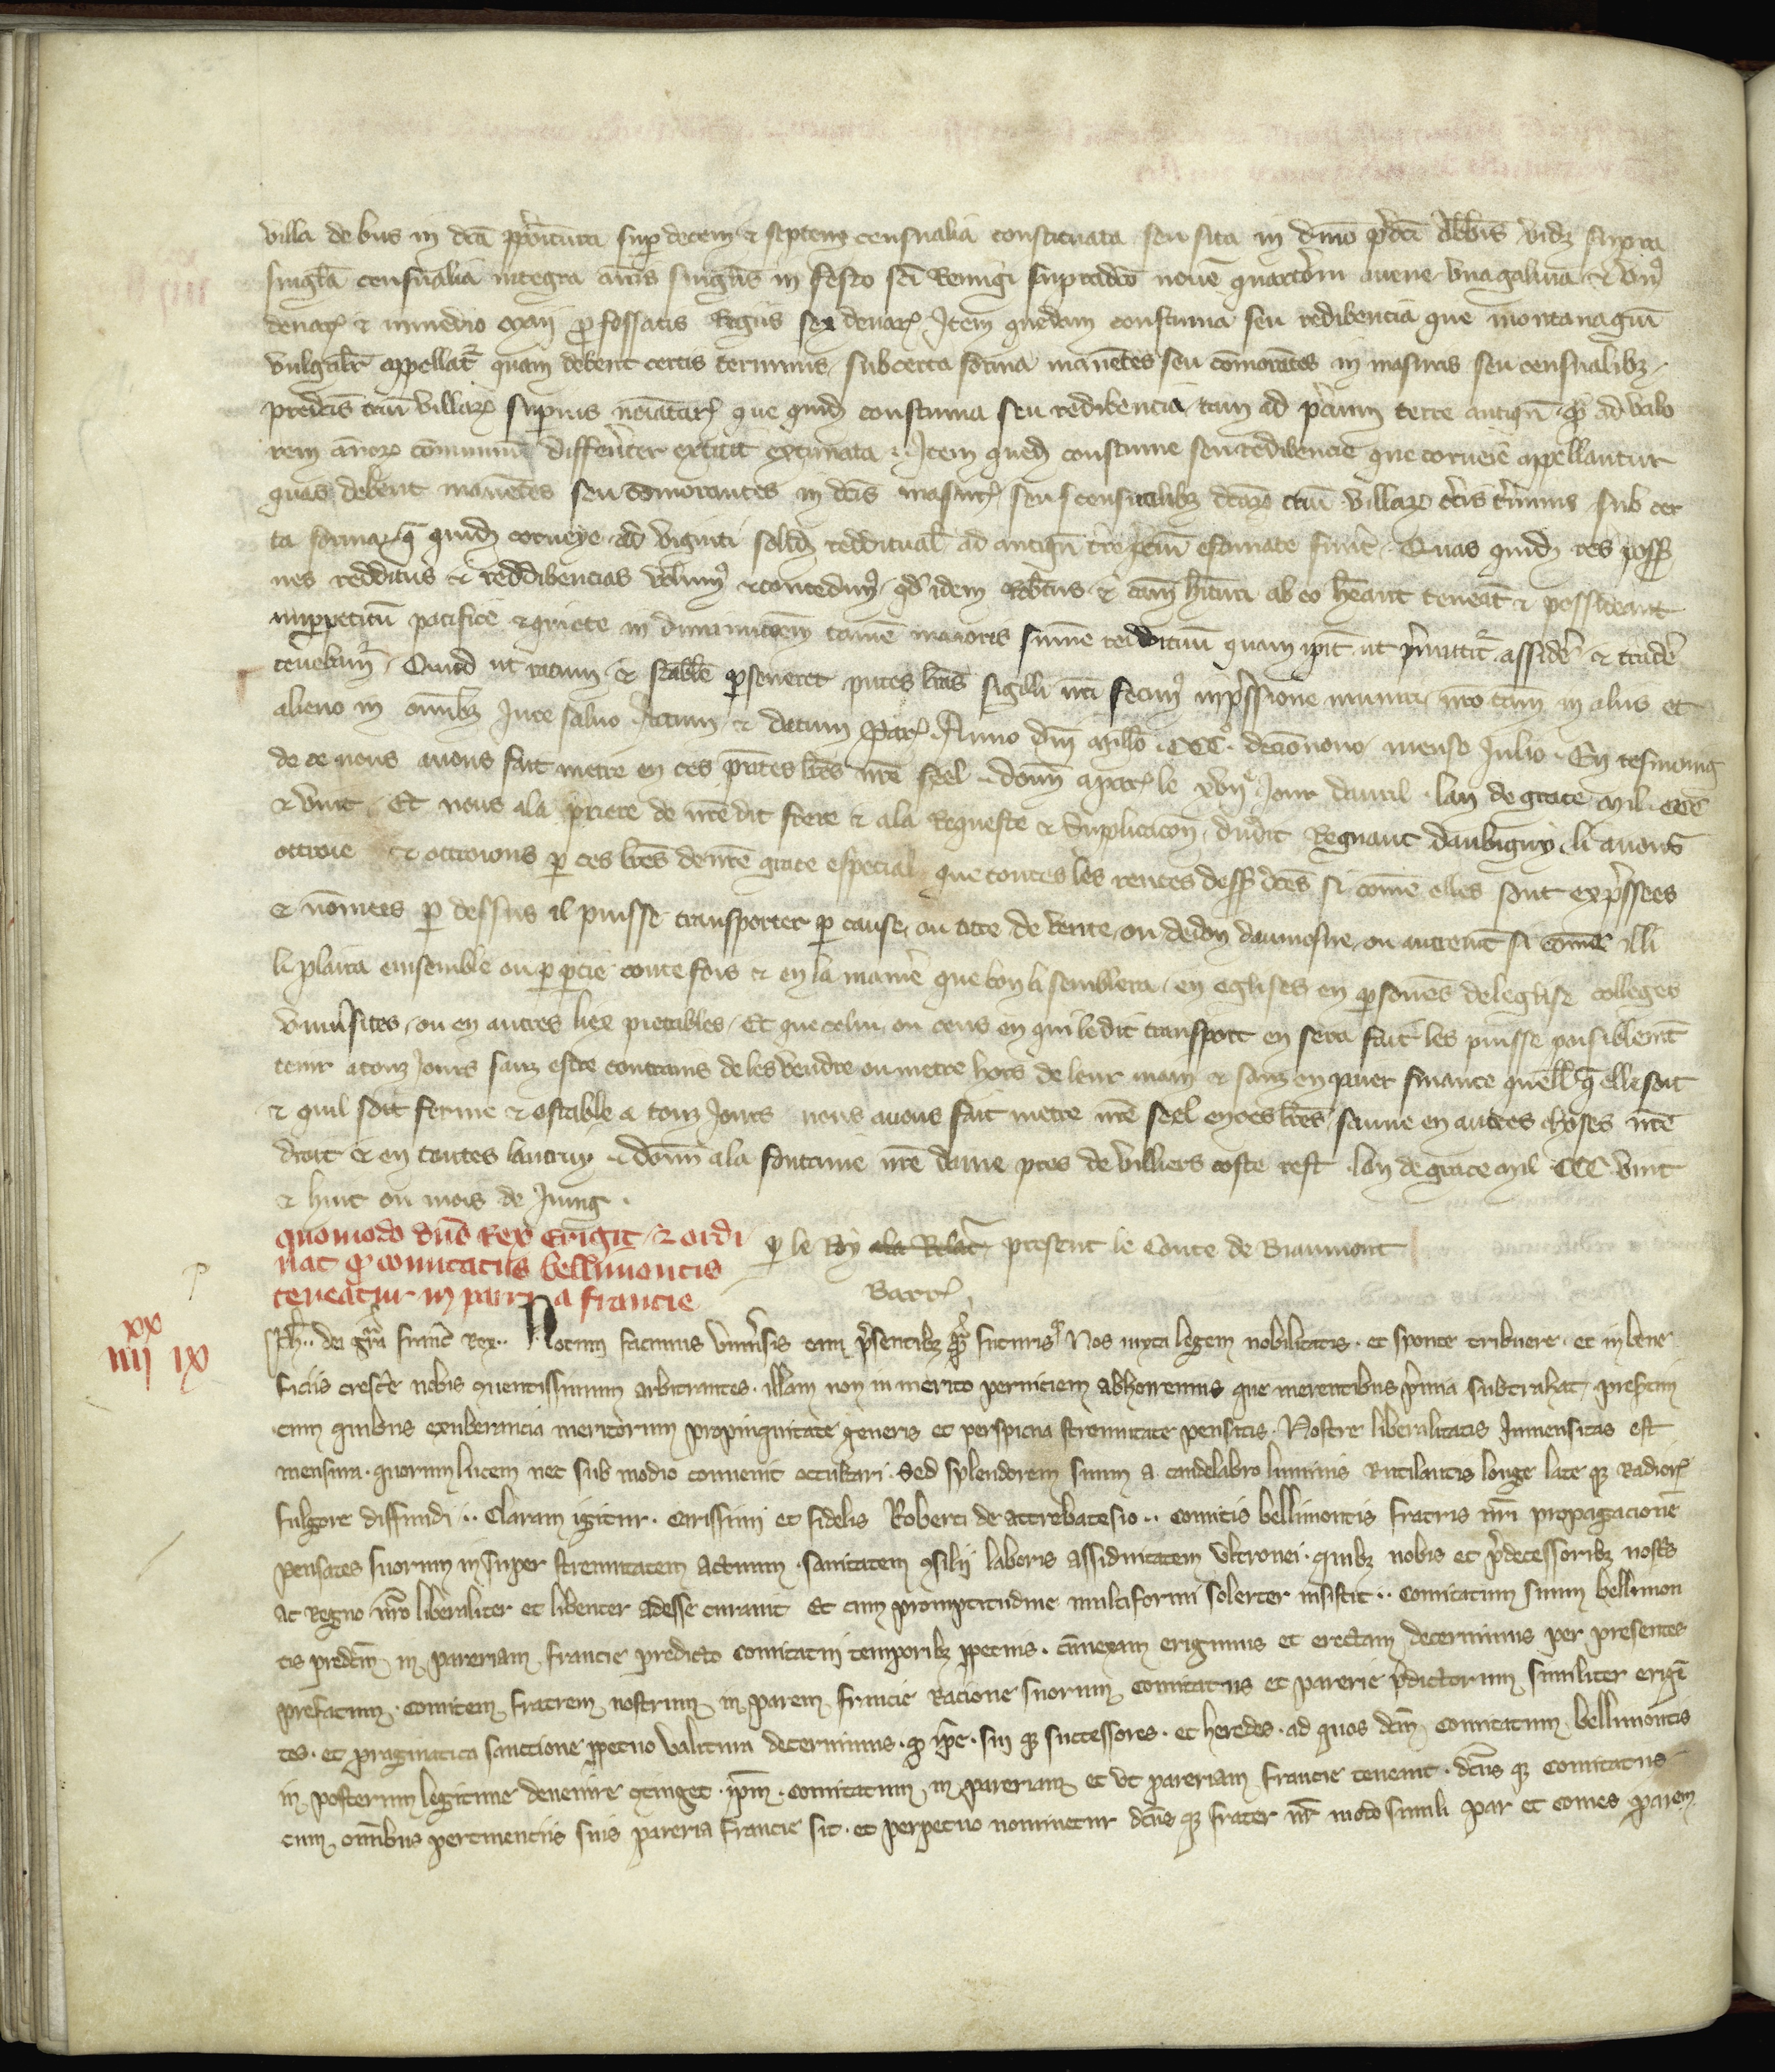 villa de bus in dcā ppōitura sup decem & septem censualia constituata seu sita in dmo p̄dci Abb̄is vidz supra
singl̄a censualia integra ann̄is singlis in festo sci Remigi supradco nouē quarter̄m auene vna galina & vn9
denar & in medio maij p fossatis Regiis sex denar. Item quedam constuma seu redibencia que montanagiū
vulgalit̄ appellat̄ quam debent certis terminis sub certa forma manētes seu cōmorātes in masuris seu censualibz
predcis triū villarz superius noīatarz que quidz constuma seu redibencia tam ad p̄cium terre antiquū qȝ ad valo
rem ānorz cōmuniū differēter extitit extimata. Item quedz constume seu redibencie que corueie appellantur
quas debent manētes seu cōmorantes in dcis masurz seu censualibz dcarz triū villarz c̄tis t̄minis sub cer
ta forma q̄ quidz corueye ad viginti solidz reddituals ad antiquū t̄re p̄ciū estimate fuer̄. Quas quidz res poss̄
nes redditus & reddibencias volum9 & concedim9 qd idem Rob̄tus & cām h̄ituri ab eo h̄eant teneāt & possideant
inppetuū pacifice & quiete in diminucōem tamē maioris summe reddituū quam ip̄i ut p̄mittit̄ assidēr & tradēr
tenebam̄. Quod ut ratum & stabile pseueret p̄ntes lr̄as sigilli nr̄i fecim9 inp̄ssione muniri nr̄o tam̄ in aliis et
alieno in omībz Iure saluo. Actum & datum Parz. Anno dn̄i Mill̄o .CCCo. decio nono mense Julio. En tesmoing
de ce nous auons fait metre en ces p̄ntes lr̄es nr̄e seel. Donn̄ a parz le xviije Jour dauril lan de grace mil CCC
& vint. Et nous a la priere de nr̄edit frere & a la Requeste & supplicacon dudit Regnaut daubigny li auons
ottroie & ottroions p ces lr̄es de nr̄e grace especial que toutes les rentes dess̄ dc̄es si cōme elles sont exp̄ssees
& nōmees p dessus il puisse transporter p cause ou titre de vente ou de don daumosne ou autremt̄ si cōme il li
li plaira ensemble ou p ptie toutefois & en la manie̅ que bon li semblera en eglises en psones de leglise colleges
vniu̅sites ou en autres liex pietables. Et que celui ou ceus en qui ledit transport en sera fait les puisse paisiblemt̄
tenir a touz jours sanz estre contrains de les vendre ou metre hors de leur main & sanz en paier finance quelle q̄ elle soit
& quil soit ferme & estable a touz Jours nous auons fait metre nr̄e seel en ces lr̄es sauue en autres choses nr̄e
droit & en toutes lautruy. Donn̄ a la fontaine nr̄e dame pres de villiers coste rest lan de grace mil CCC vint
& huit ou mois de Juing.
quomodo dn̄s Rex erigit & ordi
nat qȝ comitatus bellimontis
teneatur in parria francie
p le Roy ala Relac̄ present le Conte de Biaumont
Barr̄
xx
iiij ix
Ph.. dei gr̄a franc̄ Rex.. Notum facimus vniu̅sis tam p̄sentibz qȝ futuris qȝ Nos iuxta legem nobilitatis. et sponte tribuere. et in bene
ficiis cresce̅ nobis quentissimum arbitrantes. illam non inmerito perniciem abhorremus que merentibus p̄mia subtrahat. presertim
cum quibus exuberancia meritorum propinquitate generis et perspicua strenuitate pensatis. Nostre liberalitatis Inmensitas est
mensura. quorum lucem nec sub modio conuenit occultari. Sed splendorem suum a candelabro luminis Rutilantis longe late qȝ Radiorz
fulgore diffundi.. Claram igitur. carissimi et fidelis Roberti de attrebatesio.. comitis bellimontis fratris nr̄i propagacionē
pensates suorum insuper strenuitatem actuum. sanitatem 9silij laboris assiduitatem vltronei. quibz nobis et p̄decessoribz nost̄s
ac Regno nr̄o liberaliter et libenter adesse curauit Et cum promptitudine multiformi solerter insistit.. Comitatum suum bellimon
tis predcm̄ in pareriam francie predicto comitatui temporibz ppetuis. annexam erigimus et erectam decernimus per presentes
prefatum. comitem fratrem nostrum in parem francie Racione suorum comitatus et parerie p̄dictorum similiter erigē
tes. et pragmatica sanctione ppetuo valitura decernimus. qȝ ip̄e. sui qȝ successores. et heredes. ad quos dcm̄ comitatum bellimontis
in posterum legitime deuenire 9tinget. ip̄m. comitatum in pareriam et vt pareriam francie teneant. dc̄us qȝ comitatus
cum omībus pertinentiis suis pareria francie sit. et perpetuo nominetur dc̄us qȝ frater nr̄ modo simili par et comes parem